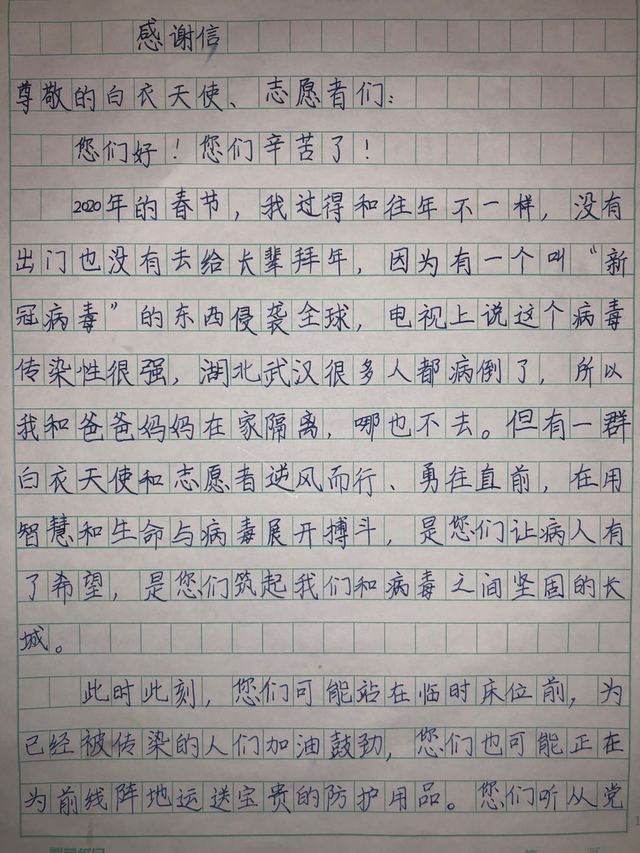 感谢信
尊敬的白衣天使、志愿者们：
您们好！您们辛苦了！
2020年的春节，我过得和往年不一样，没有
出门也没有去给长辈拜年，因为有一个叫“新
冠病毒”的东西侵袭全球，电视上说这个病毒
传染性很强，湖北武汉很多人都病倒了，所以
我和爸爸妈妈在家隔离，哪也不去。但有一群
白衣天使和志愿者逆风而行、勇往直前，在用
智慧和生命与病毒展开搏斗，是您们让病人有
了希望，是您们筑起我们和病毒之间坚固的长
城。
此时此刻，您们可能站在临时床位前，为
已经被传染的人们加油鼓劲，您们也可能正在
为前线阵地运送宝贵的防护用品。您们听从党